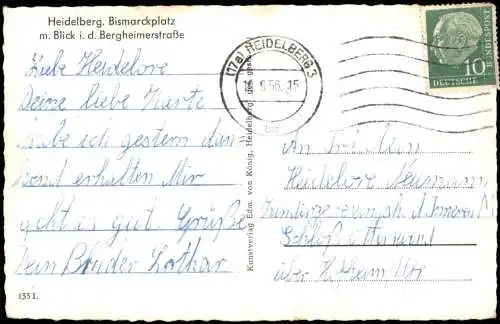 Heidelberg. Bismarckplatz
m. Blick i. d. Bergheimerstraße
Liebe Heidelore
Deine liebe Karte
habe ich gestern dan
kend erhalten Mir
geht es gut. Grüße
Dein Bruder Lothar
1331.
Kunstverlag Edm. von König, Heidelberg
(17a) HEIDELBERG 3
6.56.
DEUTSCHE BUNDESPOST
10
An Frl. Mein
Heidelore Neumann
Schloß
über